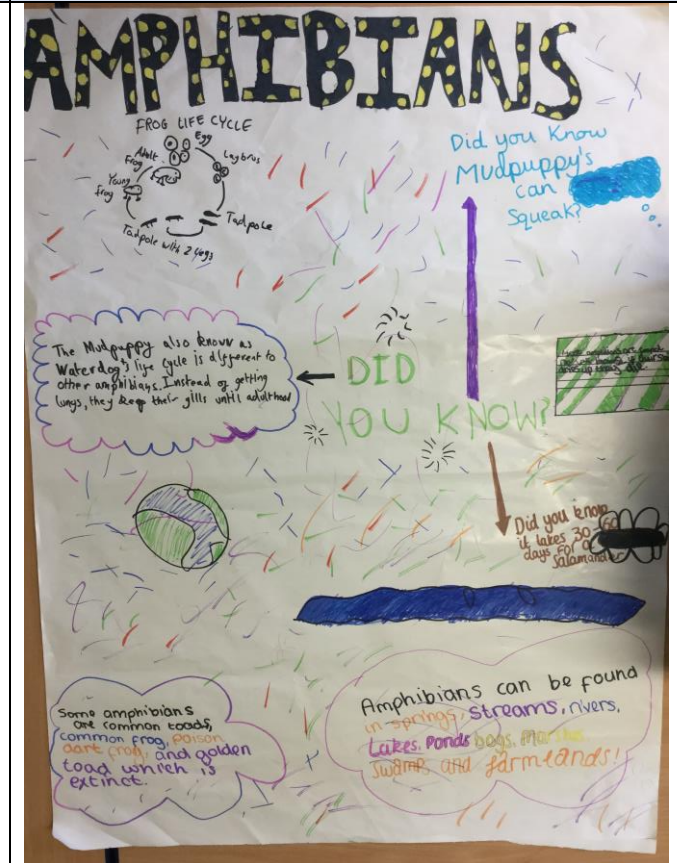 AMPHIBIANS
FROG LIFE CYCLE
Egg
Adult
Frog
Young
frog
Tadpole
Tadpole with 2 legs
Did you Know
Mudpuppy's
can
Squeak?
The Mudpuppy also known as
Waterdog's life cycle is different to
other amphibians. Instead of getting
lungs, they keep their gills until adulthood
DID
YOU KNOW?
Did you know
it takes 30-60
days for a
Salamander
Some amphibians
are common toads,
common frog, poison
dart frog, and golden
toad which is
extinct.
Amphibians can be found
in springs, streams, rivers,
Lakes, Ponds bogs, Marshes
swamp, and farmlands!